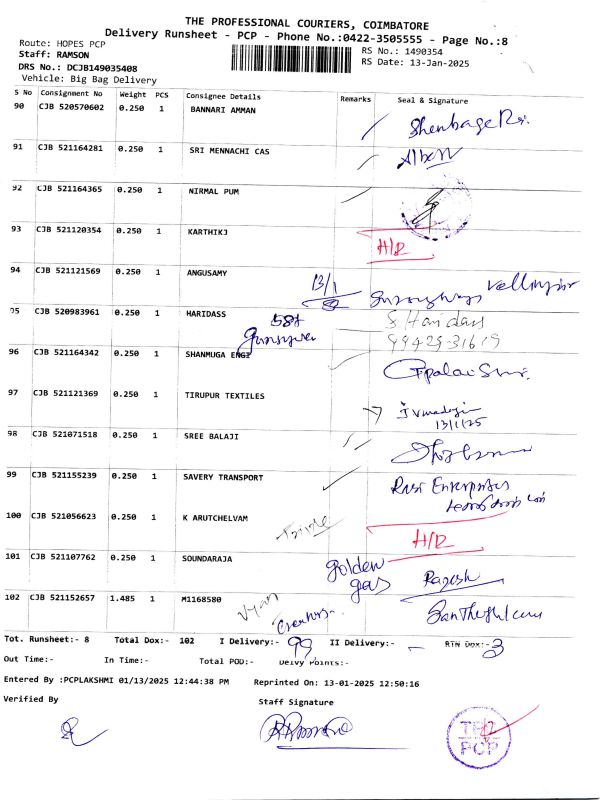 THE PROFESSIONAL COURIERS, COIMBATORE
Delivery Runsheet - PCP - Phone No.:0422-3505555 - Page No.:8
Route: HOPES PCP
Staff: RAMSON
DRS No.: DCJB149035408
Vehicle: Big Bag Delivery
RS No.: 1490354
RS Date: 13-Jan-2025
S No Consignment No Weight PCS Consignee Details Remarks Seal & Signature
90 CJB 520570602 0.250 1 BANNARI AMMAN
91 CJB 521164281 0.250 1 SRI MENNACHI CAS
92 CJB 521164365 0.250 1 NIRMAL PUM
93 CJB 521120354 0.250 1 KARTHIKJ H/R
94 CJB 521121569 0.250 1 ANGUSAMY 13/1
95 CJB 520983961 0.250 1 HARIDASS S Haridass
99429-31619
96 CJB 521164342 0.250 1 SHANMUGA ENGI
97 CJB 521121369 0.250 1 TIRUPUR TEXTILES
13/1/25
98 CJB 521071518 0.250 1 SREE BALAJI
99 CJB 521155239 0.250 1 SAVERY TRANSPORT Rasi Enterprises
100 CJB 521056623 0.250 1 K ARUTCHELVAM H/R
101 CJB 521107762 0.250 1 SOUNDARAJA Golden gas Ragesh
102 CJB 521152657 1.485 1 M1168580
Tot. Runsheet:- 8 Total Dox:- 102 I Delivery:- 99 II Delivery:- - RTN Dox:- 3
Out Time:- In Time:- Total POD:- Delvy Points:-
Entered By :PCPLAKSHMI 01/13/2025 12:44:38 PM Reprinted On: 13-01-2025 12:50:16
Verified By Staff Signature
PCP